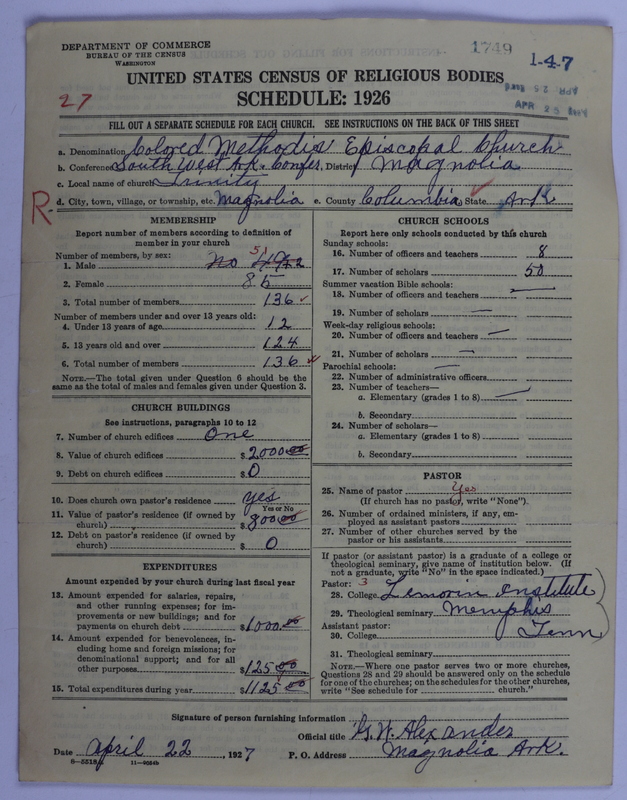 DEPARTMENT OF COMMERCE
BUREAU OF THE CENSUS
WASHINGTON
1749
1-4-7
APR 25
UNITED STATES CENSUS OF RELIGIOUS BODIES
SCHEDULE: 1926
27
FILL OUT A SEPARATE SCHEDULE FOR EACH CHURCH. SEE INSTRUCTIONS ON THE BACK OF THIS SHEET
a. Denomination Colored Methodis Episcopal Church
b. Conference South West Ark. Confer. District Magnolia
c. Local name of church Trinity
R- d. City, town, village, or township, etc. Magnolia e. County Columbia State Ark
MEMBERSHIP
Report number of members according to definition of
member in your church
Number of members, by sex:
51
1. Male no
2. Female 85
3. Total number of members 136
Number of members under and over 13 years old:
4. Under 13 years of age 12
5. 13 years old and over 124
6. Total number of members 136
NOTE.—The total given under Question 6 should be the
same as the total of males and females given under Question 3.
CHURCH BUILDINGS
See instructions, paragraphs 10 to 12
7. Number of church edifices One
8. Value of church edifices $ 2000.00
9. Debt on church edifices $ 0
10. Does church own pastor's residence yes
Yes or No
11. Value of pastor's residence (if owned by
church) $ 800.00
12. Debt on pastor's residence (if owned by
church) $ 0
EXPENDITURES
Amount expended by your church during last fiscal year
13. Amount expended for salaries, repairs,
and other running expenses; for im-
provements or new buildings; and for
payments on church debt $ 1000.00
14. Amount expended for benevolences, in-
cluding home and foreign missions; for
denominational support; and for all
other purposes $ 125.00
15. Total expenditures during year $ 1125.00
CHURCH SCHOOLS
Report here only schools conducted by this church
Sunday schools:
16. Number of officers and teachers 8
17. Number of scholars 50
Summer vacation Bible schools:
18. Number of officers and teachers
19. Number of scholars —
Week-day religious schools:
20. Number of officers and teachers —
21. Number of scholars —
Parochial schools: —
22. Number of administrative officers
23. Number of teachers—
a. Elementary (grades 1 to 8) —
b. Secondary
24. Number of scholars—
a. Elementary (grades 1 to 8)
b. Secondary
PASTOR
25. Name of pastor Yes
(If church has no pastor, write "None").
26. Number of ordained ministers, if any, em-
ployed as assistant pastors
27. Number of other churches served by the
pastor or his assistants
If pastor (or assistant pastor) is a graduate of a college or
theological seminary, give name of institution below. (If
not a graduate, write "No" in the space indicated.)
Pastor: 3
28. College Lemorin Institute
29. Theological seminary Memphis
Assistant pastor:
30. College Tenn
31. Theological seminary
NOTE.—Where one pastor serves two or more churches,
Questions 28 and 29 should be answered only on the schedule
for one of the churches; on the schedules for the other churches,
write "See schedule for church."
Signature of person furnishing information
Official title G. W. Alexander
Date April 22, 1927 P. O. Address Magnolia Ark.
11-9034b